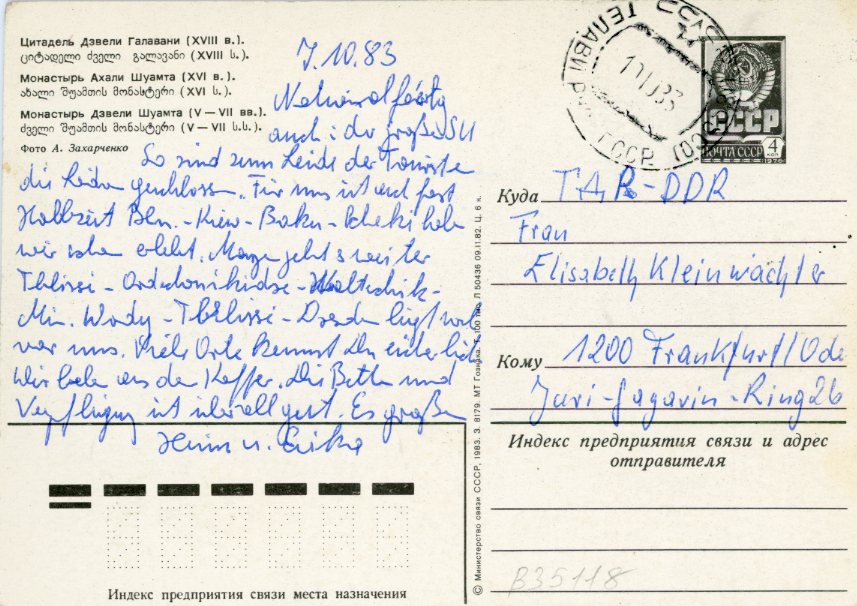 Цитадель Дзвели Галавани (XVIII в.).
ციტადელი ძველი გალავანი (XVIII ს.).
Монастырь Ахали Шуамта (XVI в.).
ახალი შუამთის მონასტერი (XVI ს.).
Монастырь Дзвели Шуамта (V — VII вв.).
ძველი შუამთის მონასტერი (V — VII ს.ს.).
Фото А. Захарченко
7.10.83
Nationalfeiertag
auch i. der großen SU
So sind zum Leide der Touristen
die Läden geschlossen. Für uns ist auch fast
Halbzeit Bln. - Kiew - Baku - Scheki haben
wir schon erlebt. Morgen geht's weiter
Tblissi - Ordschonikidse - Naltschik -
Min. Wody - Tblissi - Dresden liegt noch
vor uns. Viele Orte kennst Du sicherlich
Wir leben aus dem Koffer. Die Betten und
Verpflegung ist überall gut. Es grüßen
Heinz u. Erika
ТЕЛАВИ
СССР
ПОЧТА СССР
4 коп
1976
Куда ГДР-DDR
Frau
Elisabeth Kleinwächter
Кому 1200 Frankfurt/Oder
Juri-Gagarin-Ring 26
Индекс предприятия связи и адрес
отправителя
B35118
Индекс предприятия связи места назначения
© Министерство связи СССР, 1983. З. 8179. МТ Гознака. Л 50436 09.11.82. Ц. 6 к.